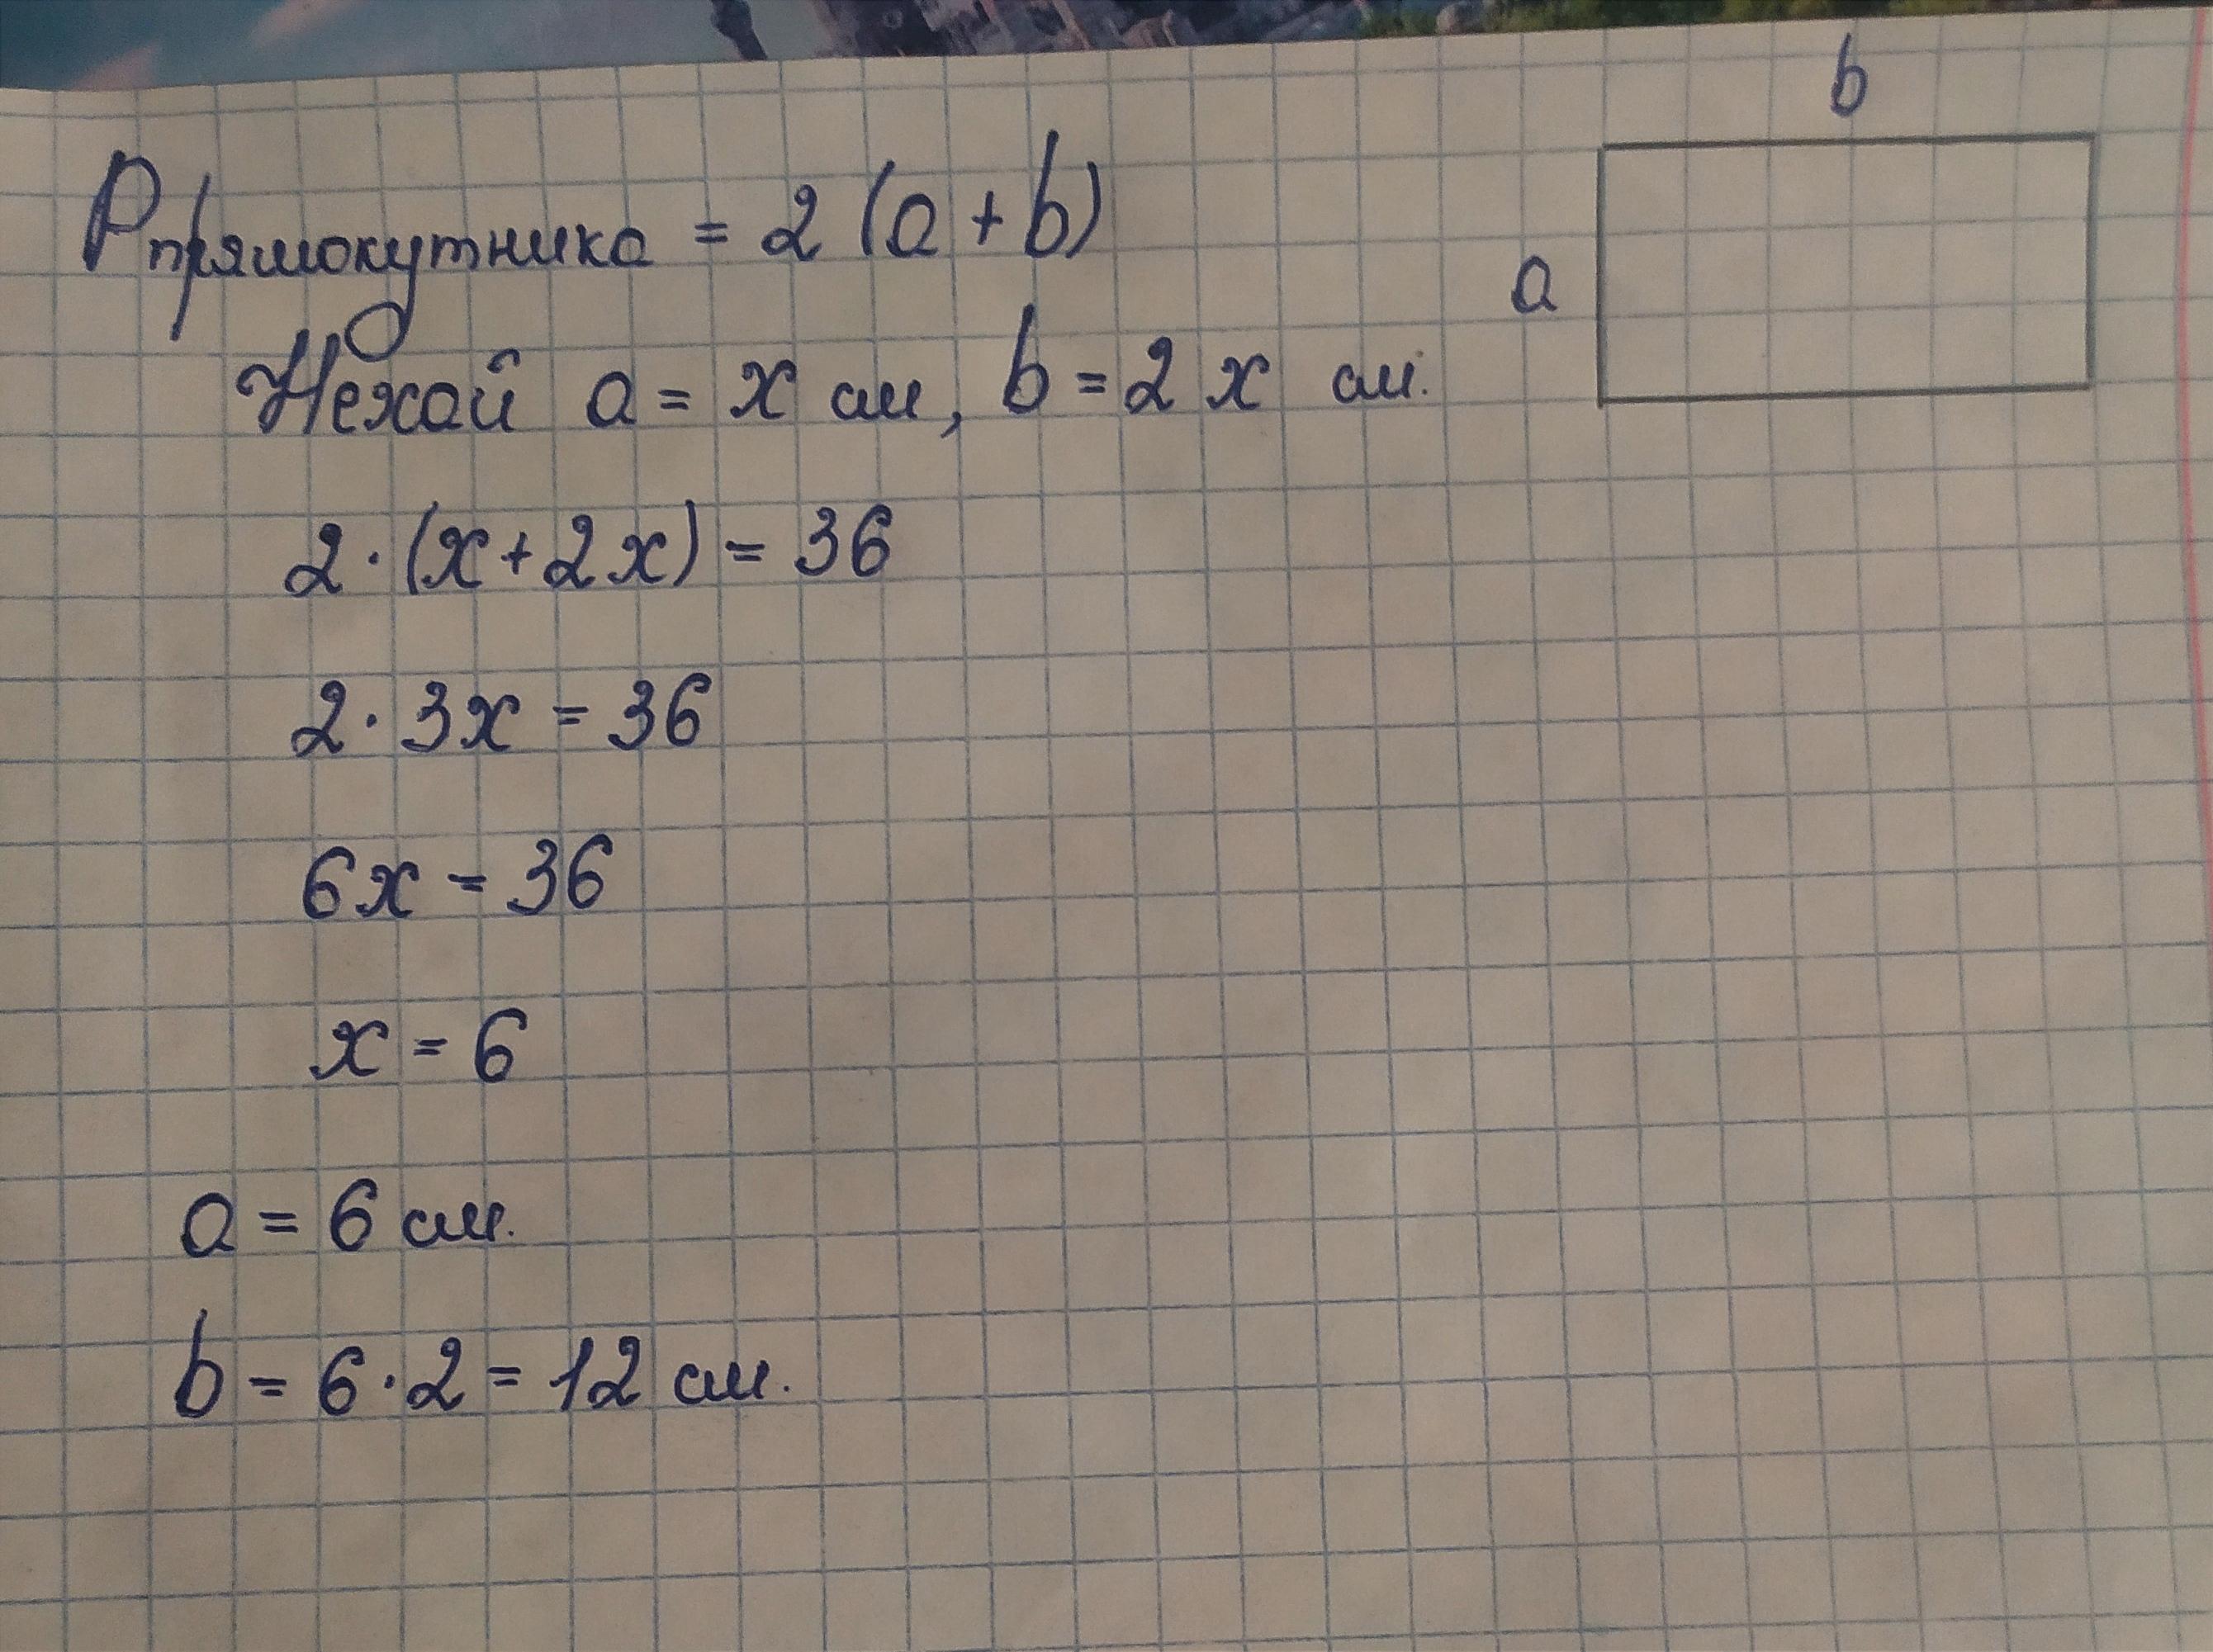 b
Pпрямокутника = 2 (a + b)
a
Нехай a = x см, b = 2 x см.
2 · (x + 2 x) = 36
2 · 3x = 36
6x = 36
x = 6
a = 6 см.
b = 6 · 2 = 12 см.